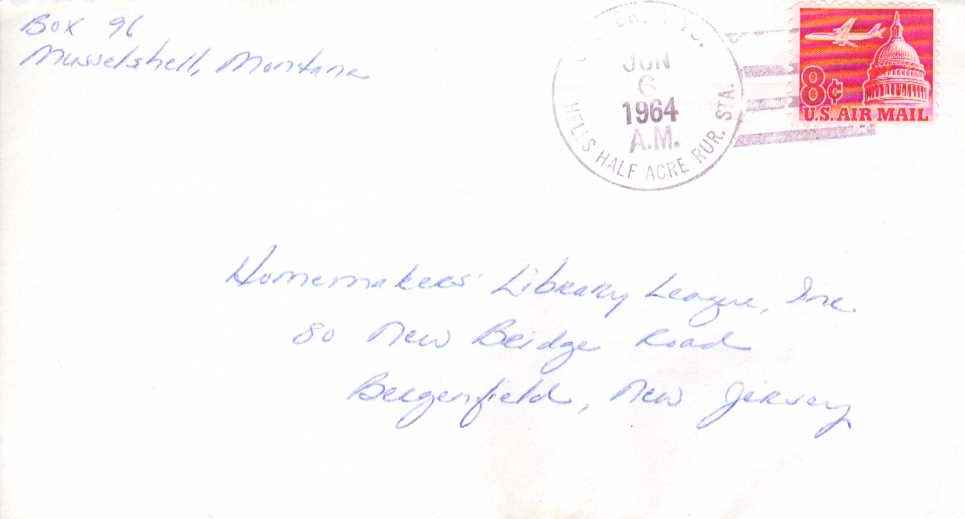 Box 96
Musselshell, Montana
JUN
6
1964
A.M.
HELL'S HALF ACRE RUR. STA.
8¢
U.S. AIR MAIL
Homemakers' Library League, Inc.
80 New Bridge Road
Bergenfield, New Jersey